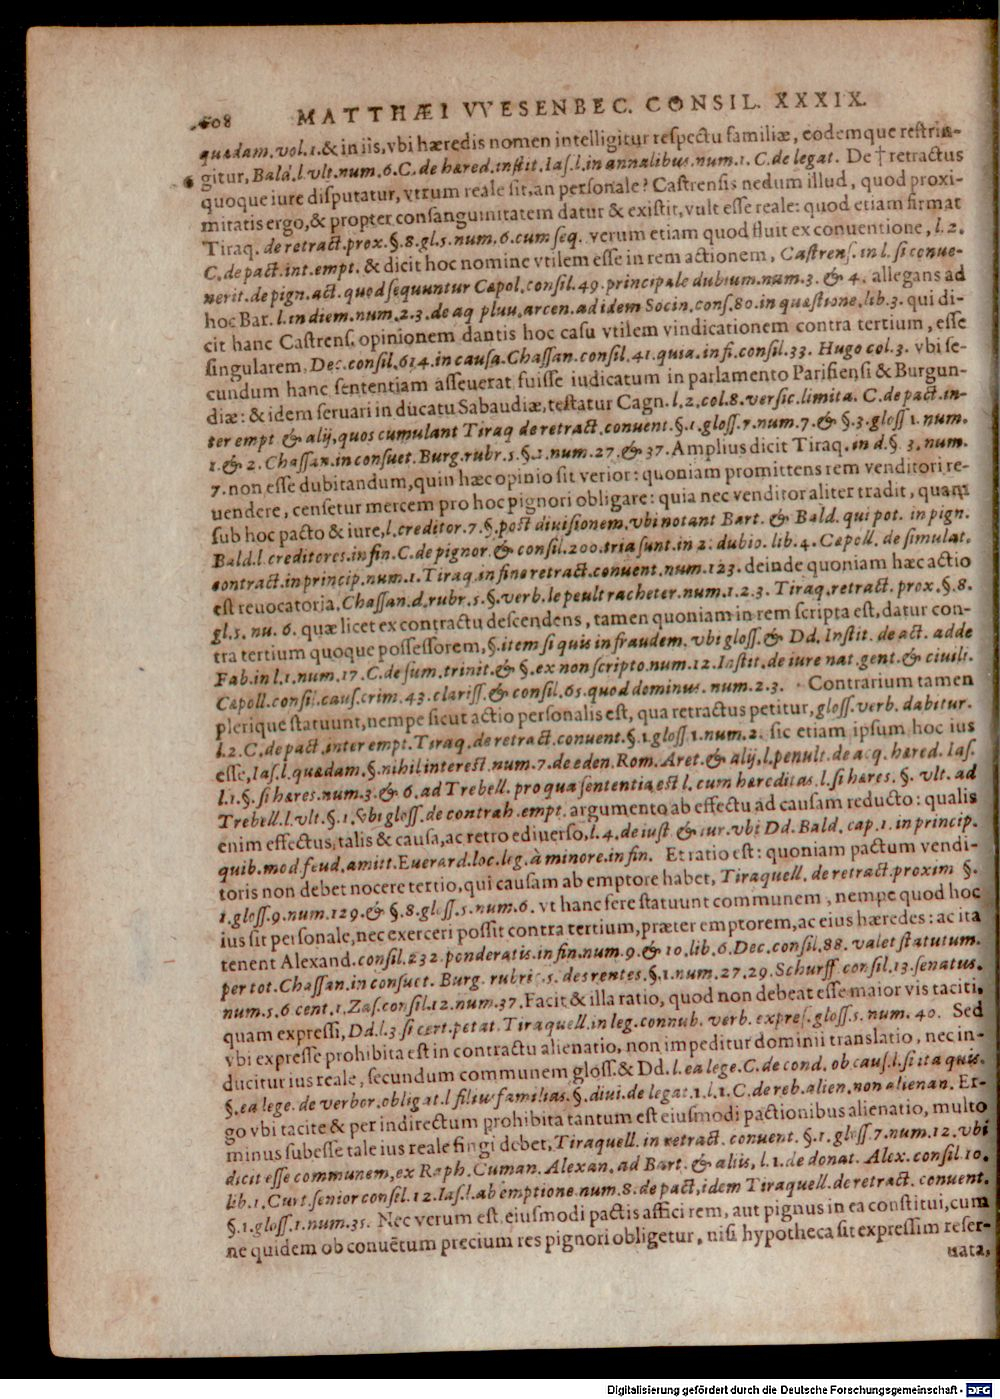 408 MATTHÆI VVESENBEC. CONSIL. XXXIX.
quædam. vol. 1. & in iis, vbi hæredis nomen intelligitur respectu familiæ, eodemque restrin-
gitur, Bald. l. vlt. num. 6. C. de hæred. instit. Ias. l. in annalibus. num. 1. C. de legat. De † retractus
6 quoque iure disputatur, vtrum reale sit, an personale? Castrensis nedum illud, quod proxi-
mitatis ergo, & propter consanguinitatem datur & existit, vult esse reale: quod etiam firmat
Tiraq. de retract. prox. §. 8. gl. 5. num. 6. cum seq. verum etiam quod fluit ex conuentione, l. 2.
C. de pact. int. empt. & dicit hoc nomine vtilem esse in rem actionem, Castrens. in l. si conue-
nerit. de pign. act. quod sequuntur Capol. consil. 49. principale dubium. num. 3. & 4. allegans ad
hoc Bar. l. in diem. num. 2. 3. de aq pluu. arcen. ad idem Socin. cons. 80. in quæstione. lib. 3. qui di-
cit hanc Castrens. opinionem dantis hoc casu vtilem vindicationem contra tertium, esse
singularem, Dec. consil. 614. in causa. Chassan. consil. 41. quia. in fi. consil. 33. Hugo col. 3. vbi se-
cundum hanc sententiam asseuerat fuisse iudicatum in parlamento Parisiensi & Burgun-
diæ: & idem seruari in ducatu Sabaudiæ, testatur Cagn. l. 2. col. 8. versic. limita. C. de pact. in-
ter empt & alij, quos cumulant Tiraq de retract. conuent. §. 1. gloss. 7. num. 7. & §. 3. gloss 1. num.
1. & 2. Chassan. in consuet. Burg. rubr. 5. §. 2. num. 27. & 37. Amplius dicit Tiraq. in d. §. 3. num.
7. non esse dubitandum, quin hæc opinio sit verior: quoniam promittens rem venditori re-
uendere, censetur mercem pro hoc pignori obligare: quia nec venditor aliter tradit, quam
sub hoc pacto & iure, l. creditor. 7. §. post diuisionem. vbi notant Bart. & Bald. qui pot. in pign.
Bald. l. creditores. in fin. C. de pignor. & consil. 200. tria sunt. in 2. dubio. lib. 4. Capoll. de simulat.
contract. in princip. num. 1. Tiraq. in fine retract. conuent. num. 123. deinde quoniam hæc actio
est reuocatoria, Chassan. d. rubr. 5. §. verb. le peult racheter. num. 1. 2. 3. Tiraq. retract. prox. §. 8.
gl. 5. nu. 6. quæ licet ex contractu descendens, tamen quoniam in rem scripta est, datur con-
tra tertium quoque possessorem, §. item si quis in fraudem. vbi gloss. & Dd. Instit. de act. adde
Fab. in l. 1. num. 17. C. de sum. trinit. & §. ex non scripto. num. 12. Instit. de iure nat. gent. & ciuili.
Capoll. consil. caus. crim. 43. clariss. & consil. 65. quod dominus. num. 2. 3. Contrarium tamen
plerique statuunt, nempe sicut actio personalis est, qua retractus petitur, gloss. verb. dabitur.
l. 2. C. de pact. inter empt. Tiraq. de retract. conuent. §. 1. gloss 1. num. 2. sic etiam ipsum hoc ius
esse, Ias. l. quædam. §. nihil interest. num. 7. de eden. Rom. Aret. & alij, l. penult. de acq. hæred. Ias.
l. 1. §. si hæres. num. 3. & 6. ad Trebell. pro qua sententia est l. cum hæreditas. l. si hæres. §. vlt. ad
Trebell. l. vlt. §. 1. vbi gloss. de contrah. empt. argumento ab effectu ad causam reducto: qualis
enim effectus, talis & causa, ac retro ediuerso, l. 4. de iust. & iur. vbi Dd. Bald. cap. 1. in princip.
quib. mod. feud. amitt. Euerard. loc. leg. à minore. in fin. Et ratio est: quoniam pactum vendi-
toris non debet nocere tertio, qui causam ab emptore habet, Tiraquell. de retract. proxim §.
1. gloss. 9. num. 129. & §. 8. gloss. 5. num. 6. vt hanc fere statuunt communem, nempe quod hoc
ius sit personale, nec exerceri possit contra tertium, præter emptorem, ac eius hæredes: ac ita
tenent Alexand. consil. 232. ponderatis. in fin. num. 9. & 10. lib. 6. Dec. consil. 88. valet statutum.
per tot. Chassan. in consuet. Burg. rubric. 5. des rentes. §. 1. num. 27. 29. Schurff. consil. 13. senatus.
num. 5. 6 cent. 1. Zas. consil. 12. num. 37. Facit & illa ratio, quod non debeat esse maior vis taciti,
quam expressi, Dd. l. 3 si cert. petat. Tiraquell. in leg. connub. verb. expres. gloss. 5. num. 40. Sed
vbi expresse prohibita est in contractu alienatio, non impeditur dominii translatio, nec in-
ducitur ius reale, secundum communem gloss. & Dd. l. ea lege. C. de cond. ob caus. l. si ita quis.
§. ea lege. de verbor. obligat. l filius familias. §. diui. de legat 1. l. 1. C. de reb. alien. non alienan. Er-
go vbi tacite & per indirectum prohibita tantum est eiusmodi pactionibus alienatio, multo
minus subesse tale ius reale fingi debet, Tiraquell. in retract. conuent. §. 1. gloss. 7. num. 12. vbi
dicit esse communem, ex Raph. Cuman. Alexan. ad Bart. & aliis, l. 1. de donat. Alex. consil. 10.
lib. 1. Curt. senior consil. 12. Ias. l. ab emptione. num. 8. de pact, idem Tiraquell. de retract. conuent.
§. 1. gloss. 1. num. 31. Nec verum est, eiusmodi pactis affici rem, aut pignus in ea constitui, cum
ne quidem ob conuẽtum precium res pignori obligetur, nisi hypotheca sit expressim reser-
uata,
Digitalisierung gefördert durch die Deutsche Forschungsgemeinschaft - DFG